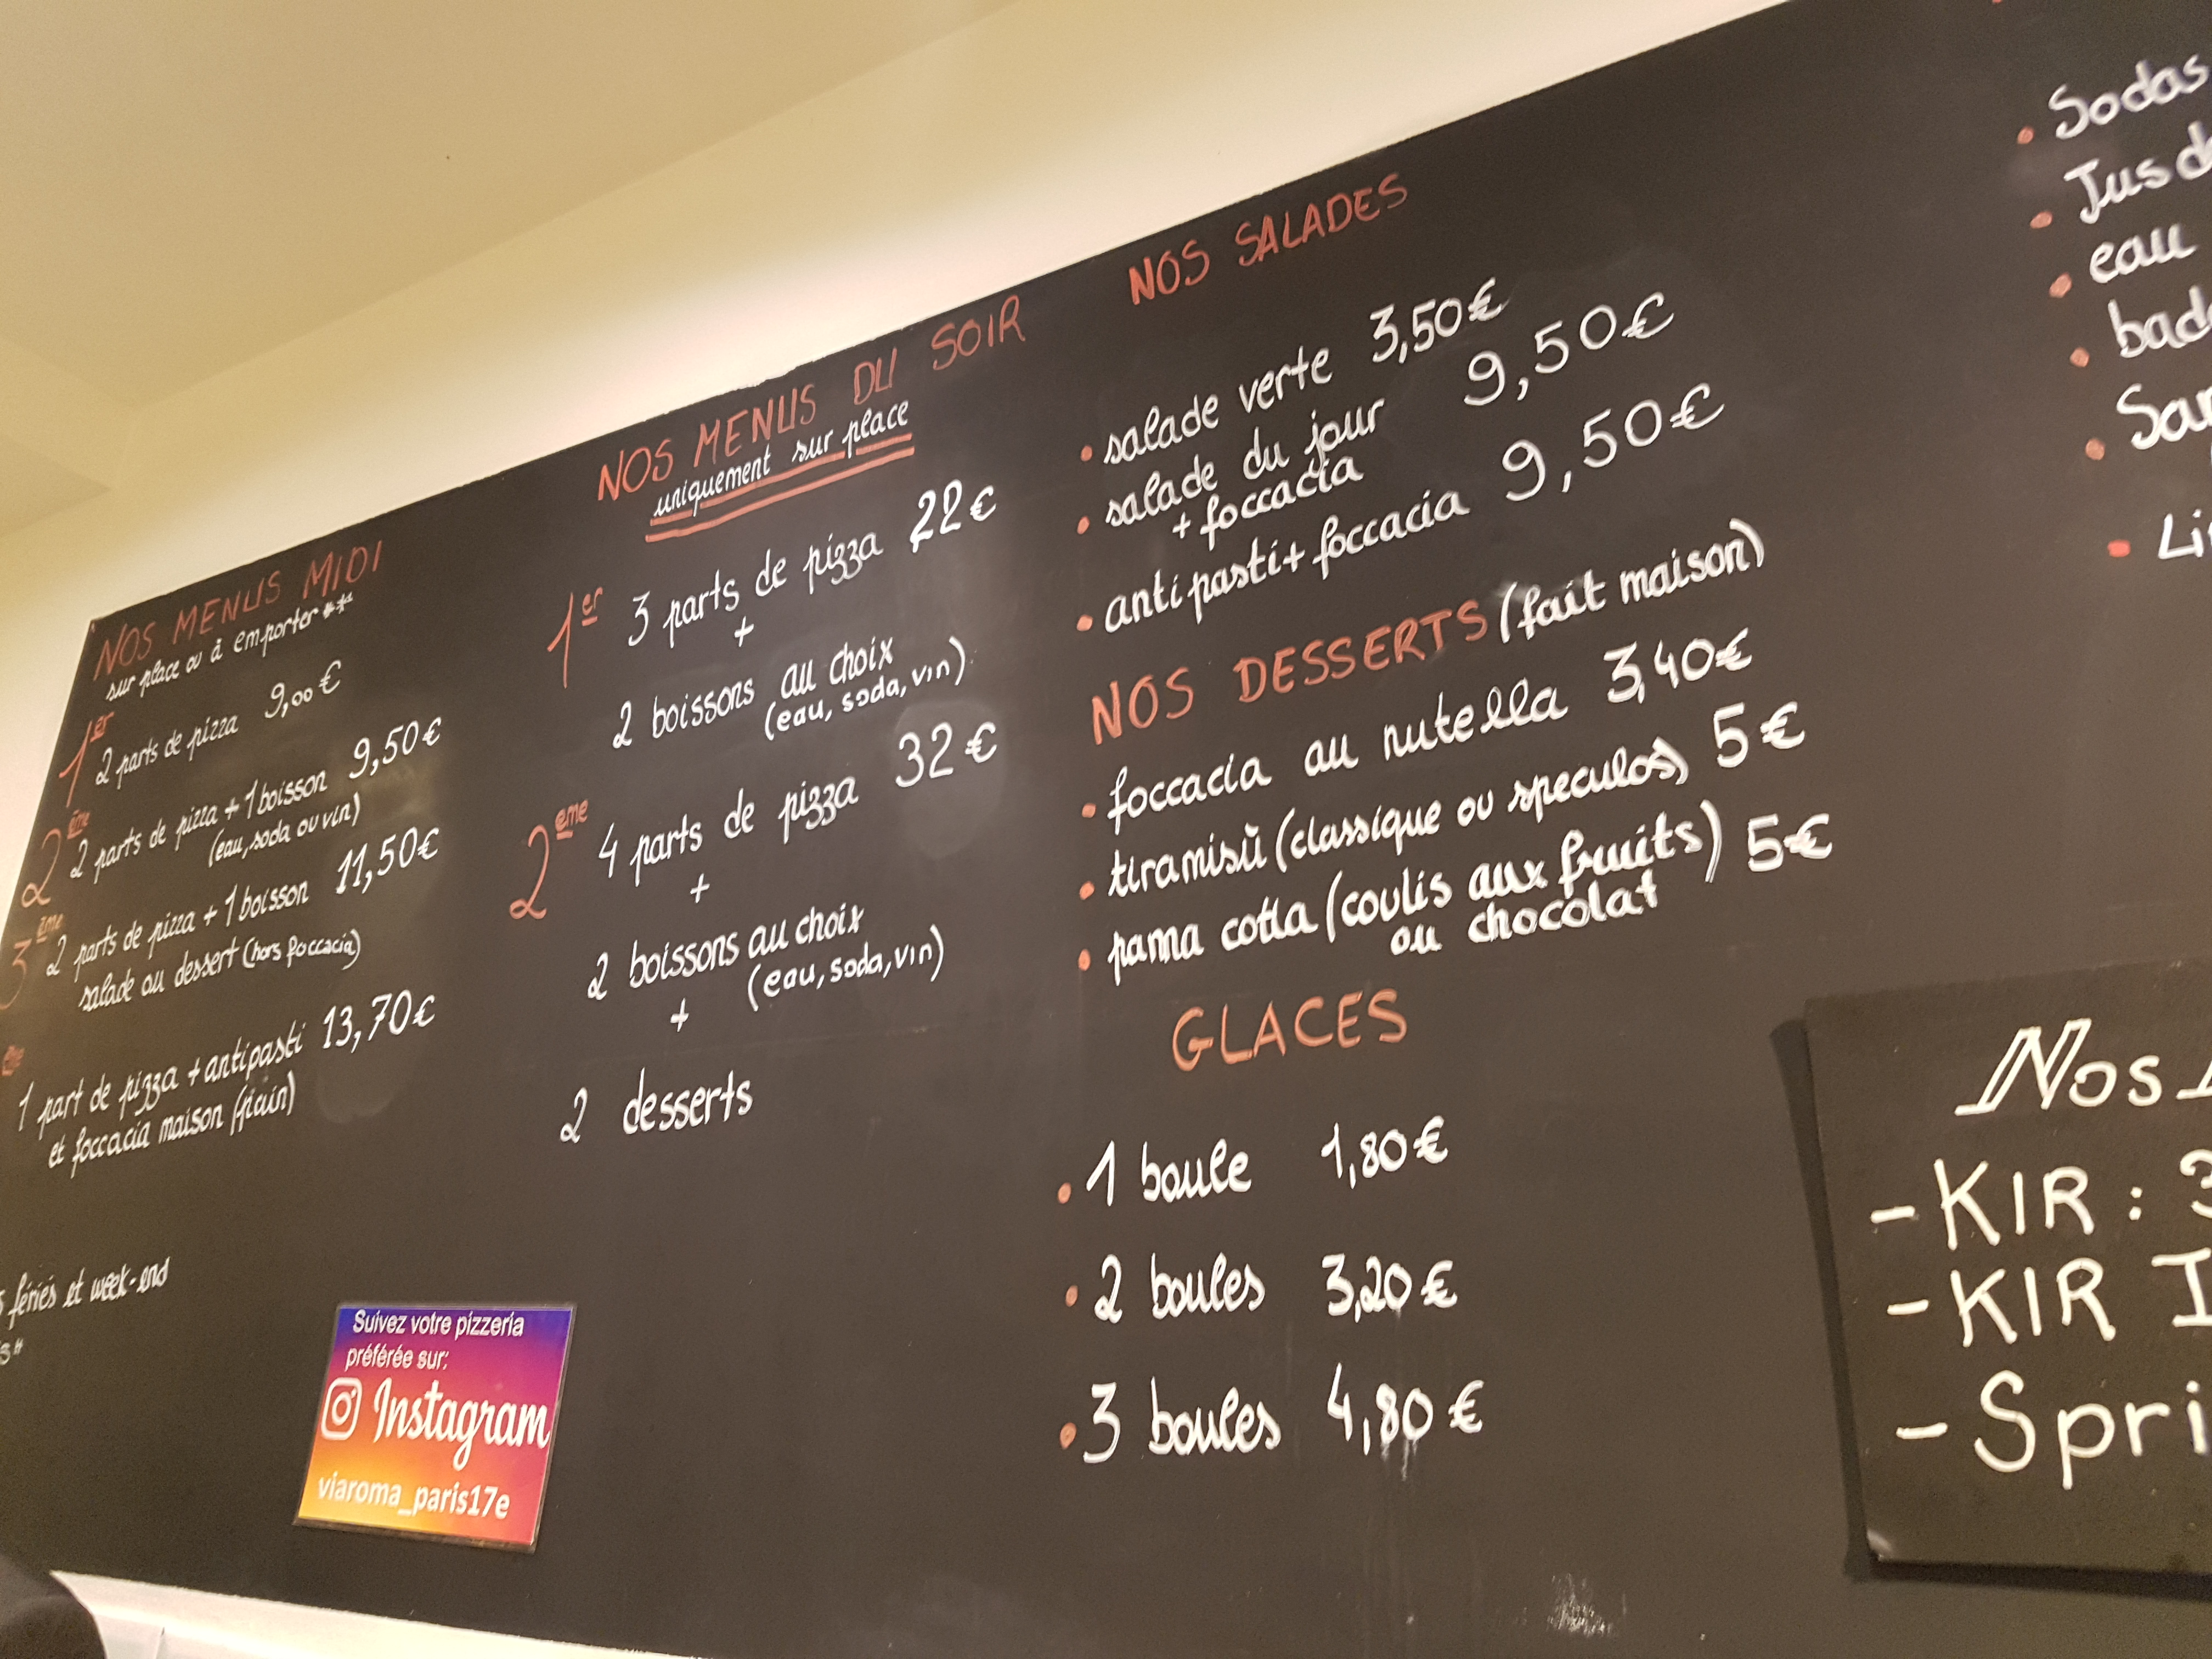 NOS MENUS MIDI
sur place ou à emporter***
1er
2 parts de pizza 9,00€
2ème
2 parts de pizza + 1 boisson 9,50€
(eau, soda ou vin)
3ème
2 parts de pizza + 1 boisson 11,50€
salade ou dessert (hors foccacia)
ème
1 part de pizza + antipasti 13,70€
et foccacia maison (pain)
fériés et week-end
NOS MENUS DU SOIR
uniquement sur place
1er 3 parts de pizza 22€
+
2 boissons au choix
(eau, soda, vin)
2eme 4 parts de pizza 32€
+
2 boissons au choix
(eau, soda, vin)
+
2 desserts
Suivez votre pizzeria
préférée sur:
Instagram
viaroma_paris17e
NOS SALADES
• salade verte 3,50€
• salade du jour 9,50€
+ foccacia
• antipasti + foccacia 9,50€
NOS DESSERTS (fait maison)
• foccacia au nutella 3,40€
• tiramisù (classique ou speculos) 5€
• panna cotta (coulis aux fruits) 5€
ou chocolat
GLACES
• 1 boule 1,80€
• 2 boules 3,20€
• 3 boules 4,80€
• Sodas
• Jus d
• eau
• bad
•
• Li
Nos
- KIR : 3
- KIR I
- Spri